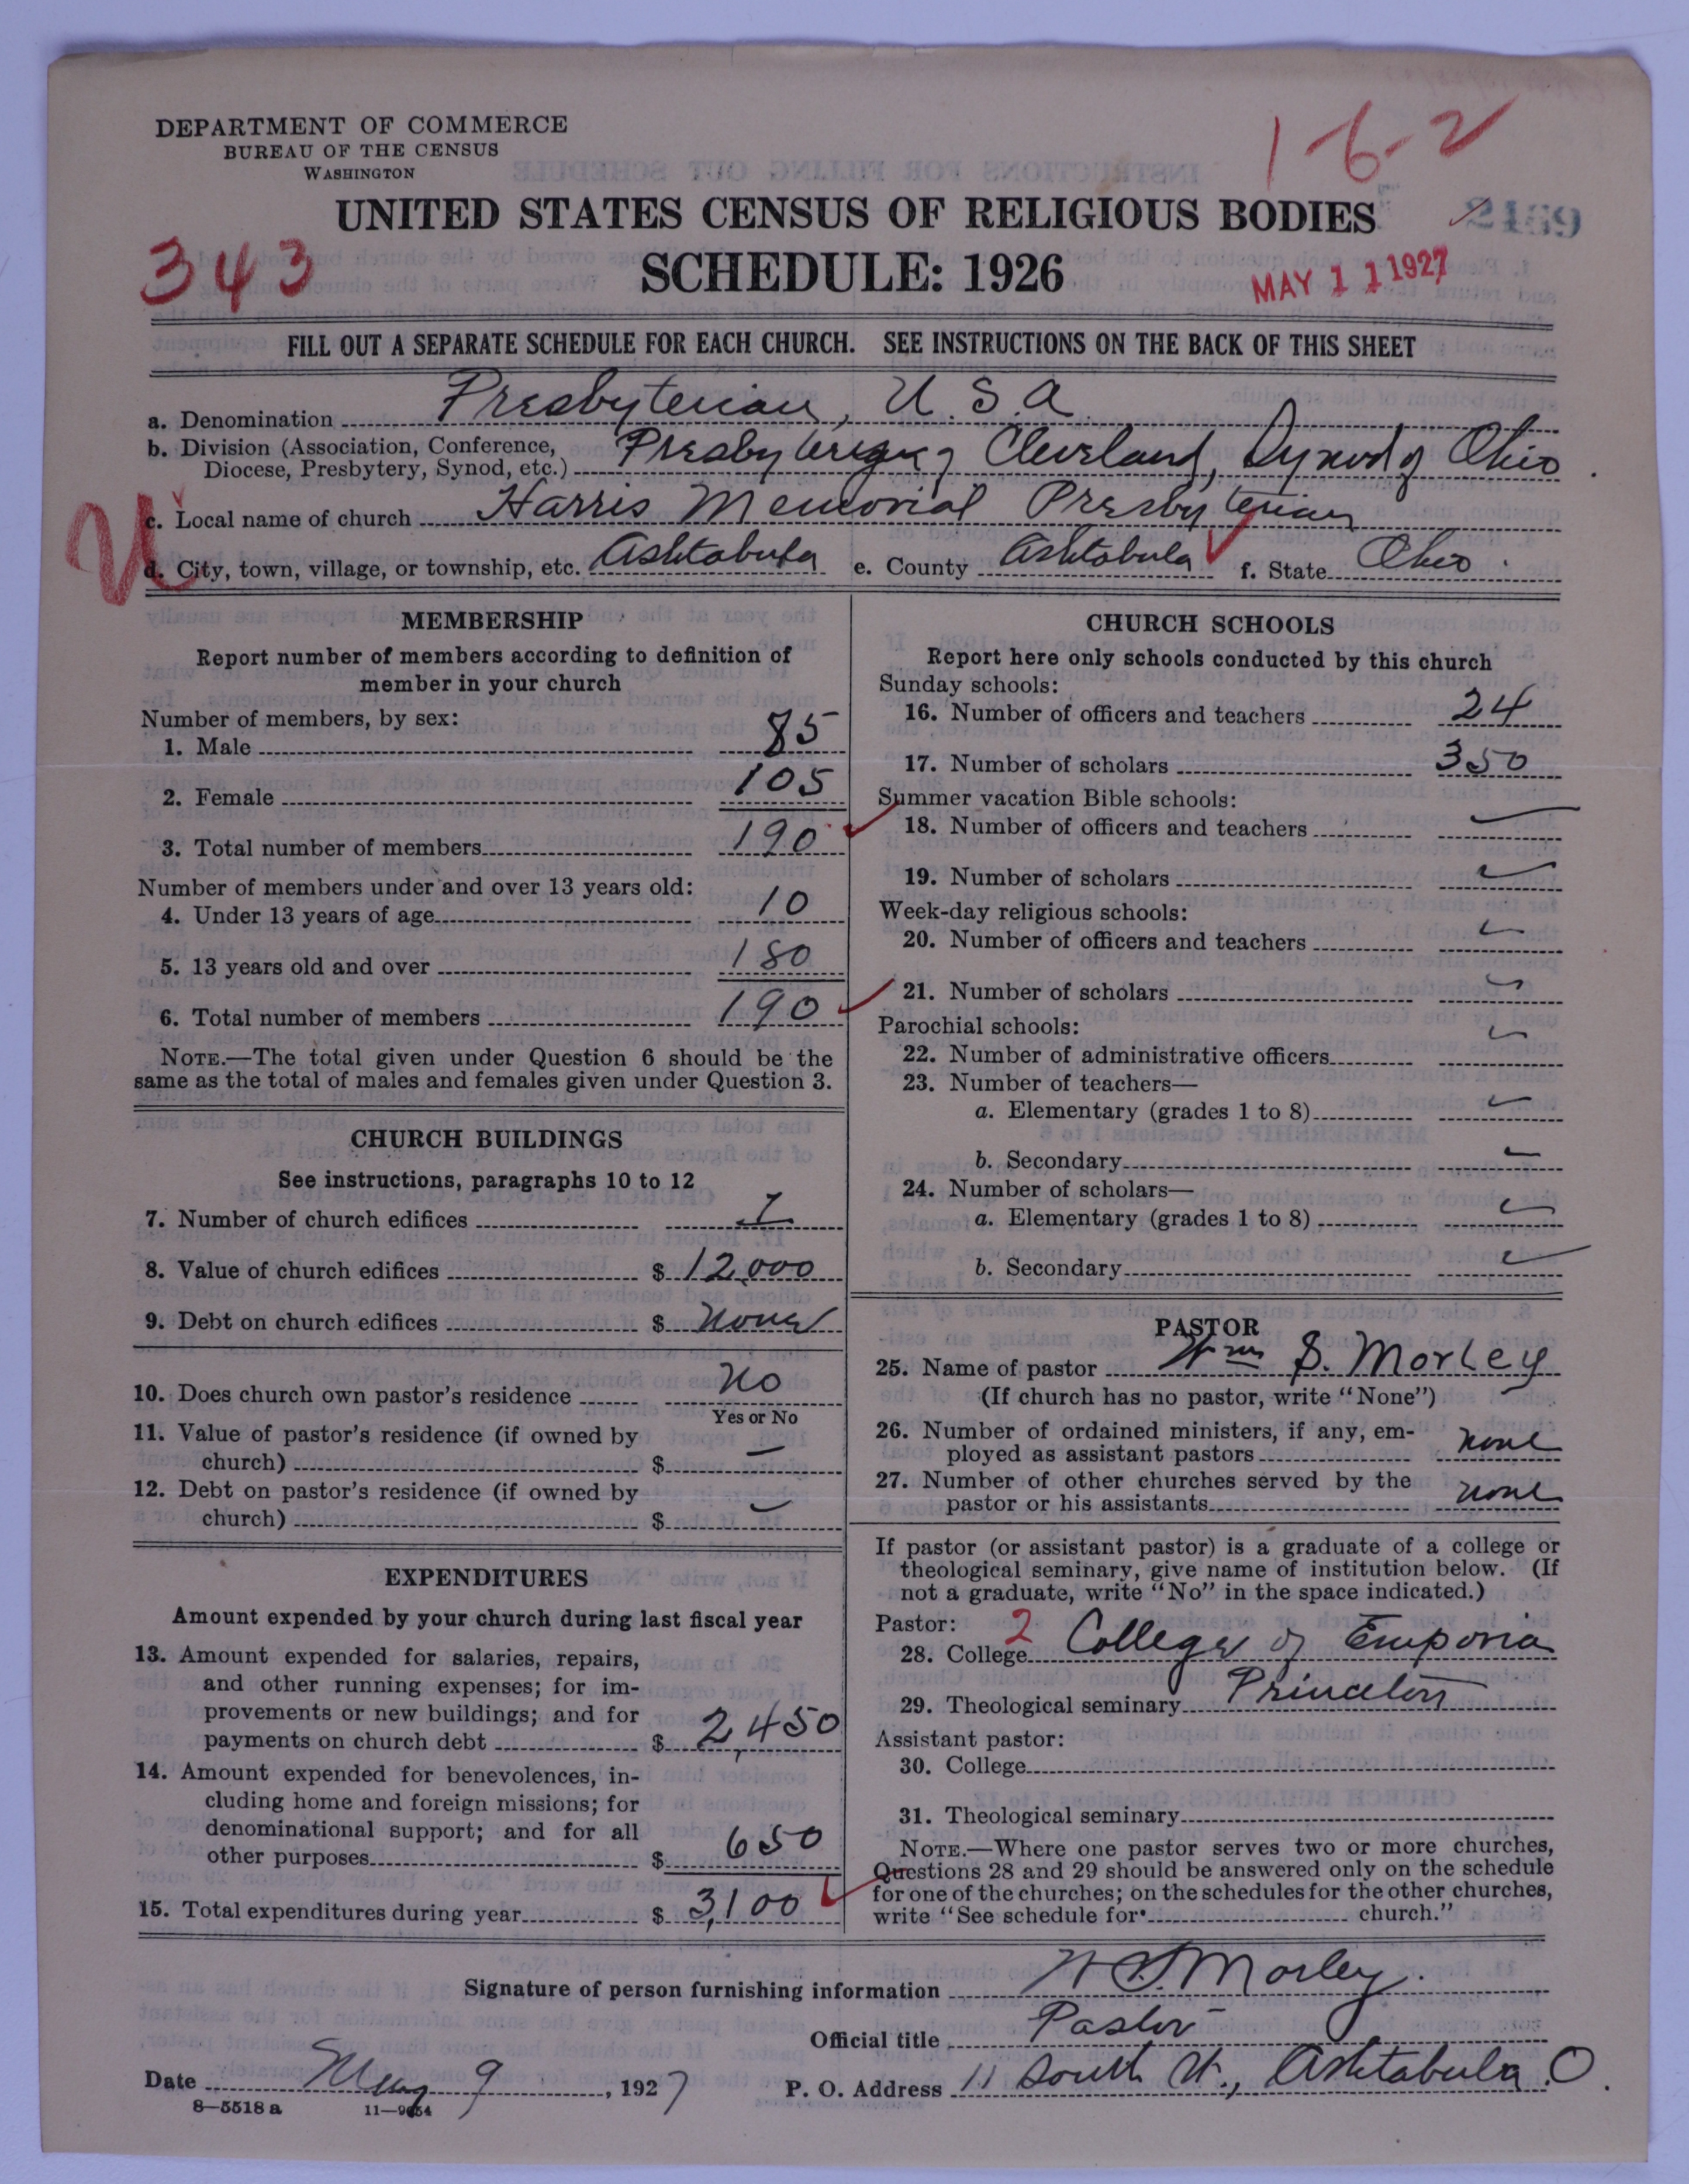 DEPARTMENT OF COMMERCE
BUREAU OF THE CENSUS
WASHINGTON
1-6-2
UNITED STATES CENSUS OF RELIGIOUS BODIES
2459
343
SCHEDULE: 1926
MAY 11 1927
FILL OUT A SEPARATE SCHEDULE FOR EACH CHURCH. SEE INSTRUCTIONS ON THE BACK OF THIS SHEET
a. Denomination Presbyterian, U.S.A.
b. Division (Association, Conference, Diocese, Presbytery, Synod, etc.) Presbytery of Cleveland, Synod of Ohio
U
c. Local name of church Harris Memorial Presbyterian
d. City, town, village, or township, etc. Ashtabula e. County Ashtabula f. State Ohio
MEMBERSHIP
Report number of members according to definition of
member in your church
Number of members, by sex:
1. Male 85
2. Female 105
3. Total number of members 190
Number of members under and over 13 years old:
4. Under 13 years of age 10
5. 13 years old and over 180
6. Total number of members 190
NOTE.—The total given under Question 6 should be the
same as the total of males and females given under Question 3.
CHURCH BUILDINGS
See instructions, paragraphs 10 to 12
7. Number of church edifices 1
8. Value of church edifices $ 12,000
9. Debt on church edifices $ none
10. Does church own pastor's residence No
Yes or No
11. Value of pastor's residence (if owned by
church) $ —
12. Debt on pastor's residence (if owned by
church) $ —
EXPENDITURES
Amount expended by your church during last fiscal year
13. Amount expended for salaries, repairs,
and other running expenses; for im-
provements or new buildings; and for
payments on church debt $ 2,450
14. Amount expended for benevolences, in-
cluding home and foreign missions; for
denominational support; and for all
other purposes $ 650
15. Total expenditures during year $ 3,100
CHURCH SCHOOLS
Report here only schools conducted by this church
Sunday schools:
16. Number of officers and teachers 24
17. Number of scholars 350
Summer vacation Bible schools:
18. Number of officers and teachers —
19. Number of scholars —
Week-day religious schools:
20. Number of officers and teachers —
21. Number of scholars —
Parochial schools:
22. Number of administrative officers —
23. Number of teachers—
a. Elementary (grades 1 to 8) —
b. Secondary —
24. Number of scholars—
a. Elementary (grades 1 to 8) —
b. Secondary —
PASTOR
25. Name of pastor Wm S. Morley
(If church has no pastor, write "None")
26. Number of ordained ministers, if any, em-
ployed as assistant pastors none
27. Number of other churches served by the
pastor or his assistants none
If pastor (or assistant pastor) is a graduate of a college or
theological seminary, give name of institution below. (If
not a graduate, write "No" in the space indicated.)
Pastor: 2
28. College College of Emporia
29. Theological seminary Princeton
Assistant pastor:
30. College
31. Theological seminary
NOTE.—Where one pastor serves two or more churches,
Questions 28 and 29 should be answered only on the schedule
for one of the churches; on the schedules for the other churches,
write "See schedule for church."
Signature of person furnishing information W S Morley.
Official title Pastor
Date May 9, 1927 P. O. Address 11 South St., Ashtabula, O.
8—5518 a 11—9654